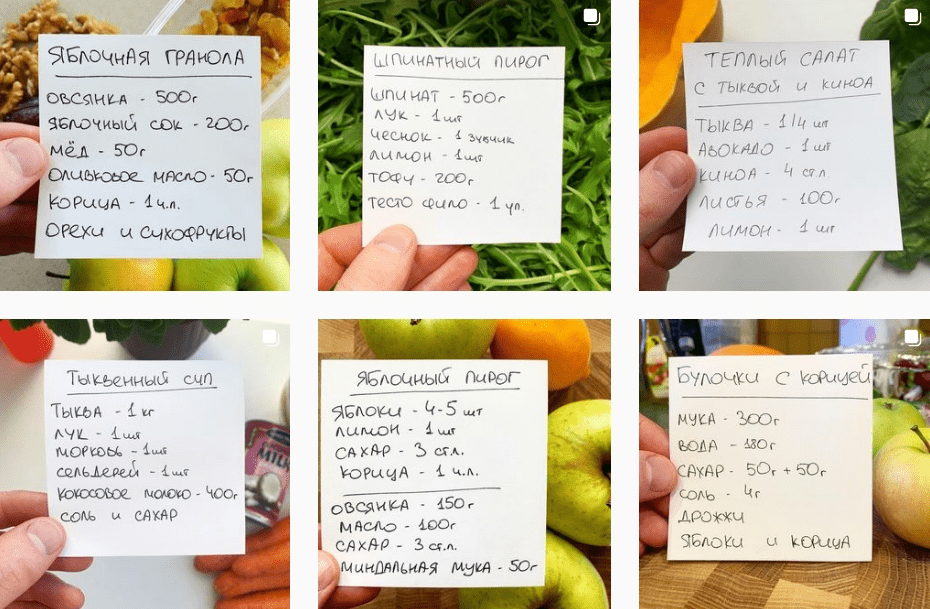 ЯБЛОЧНАЯ ГРАНОЛА
ОВСЯНКА - 500г
ЯБЛОЧНЫЙ СОК - 200г
МЁД - 50г
ОЛИВКОВОЕ МАСЛО - 50г
КОРИЦА - 1 ч.л.
ОРЕХИ И СУХОФРУКТЫ
ШПИНАТНЫЙ ПИРОГ
ШПИНАТ - 500г
ЛУК - 1 шт
ЧЕСНОК - 1 зубчик
ЛИМОН - 1 шт
ТОФУ - 200г
ТЕСТО ФИЛО - 1 уп.
ТЕПЛЫЙ САЛАТ
С ТЫКВОЙ И КИНОА
ТЫКВА - 1/4 шт
АВОКАДО - 1 шт
КИНОА - 4 ст.л.
ЛИСТЬЯ - 100г
ЛИМОН - 1 шт
ТЫКВЕННЫЙ СУП
ТЫКВА - 1 кг
ЛУК - 1 шт
МОРКОВЬ - 1 шт
СЕЛЬДЕРЕЙ - 1 шт
КОКОСОВОЕ МОЛОКО - 400г
СОЛЬ И САХАР
MILK
ЯБЛОЧНЫЙ ПИРОГ
ЯБЛОКИ - 4-5 шт
ЛИМОН - 1 шт
САХАР - 3 ст.л.
КОРИЦА - 1 ч.л.
ОВСЯНКА - 150г
МАСЛО - 100г
САХАР - 3 ст.л.
МИНДАЛЬНАЯ МУКА - 50г
БУЛОЧКИ С КОРИЦЕЙ
МУКА - 300г
ВОДА - 180г
САХАР - 50г + 50г
СОЛЬ - 4г
ДРОЖЖИ
ЯБЛОКИ И КОРИЦА